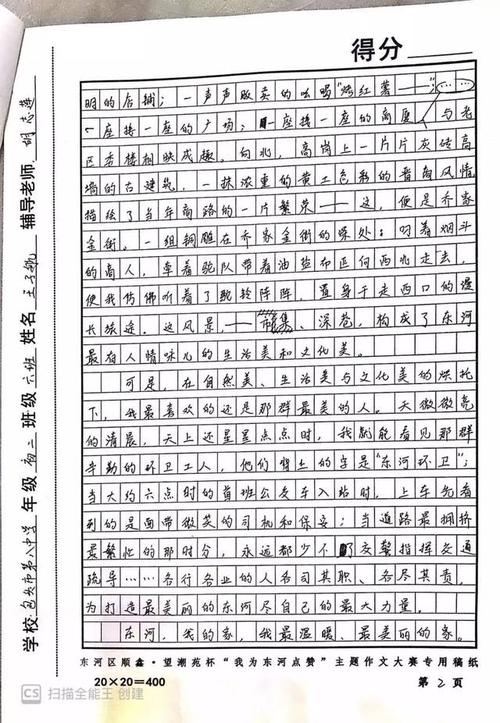 得分
明的店铺；一声声贩卖的吆喝“烤红薯——”……
一座接一座的广场；一座接一座的高厦，与老
区牵楼相映成趣。向北，高岗上一片片灰砖高
墙的古建筑，一抹浓重的黄土色彩的晋商风情
描绘了当年商路的一片繁荣——这，便是乔家
金街。一组铜雕在乔家金街的深处：叼着烟斗
的商人，牵着驼队带着油盐布匹向西北走去，
使我仿佛听着了驼铃阵阵，置身于走西口的漫
长旅途。这风景，——市集、深巷，构成了东河
最有人情味儿的生活美和文化美。
可是，在自然美、生活美与文化美的烘托
下，我最喜欢的还是那群最美的人。天微微亮
的清晨，天上还星星点点时，我就能看见那群
辛勤的环卫工人，他们背上的字是“东河环卫”；
当大约六点时的首班公交车入站时，上车先看
到的是面带微笑的司机和保安；当道路最拥挤
最繁忙的那时分，永远都少不了交警指挥交通
疏导……各行各业的人各司其职、各尽其责，
为打造最美丽的东河尽自己的最大力量。
东河，我的家，我最温暖、最美丽的家，
学校 包头市第八中学 年级 初二 班级 六班 姓名 王子 辅导老师 胡志
东河区顺鑫·望潮苑杯“我为东河点赞”主题作文大赛专用稿纸
20×20=400
第2页
CS 扫描全能王 创建